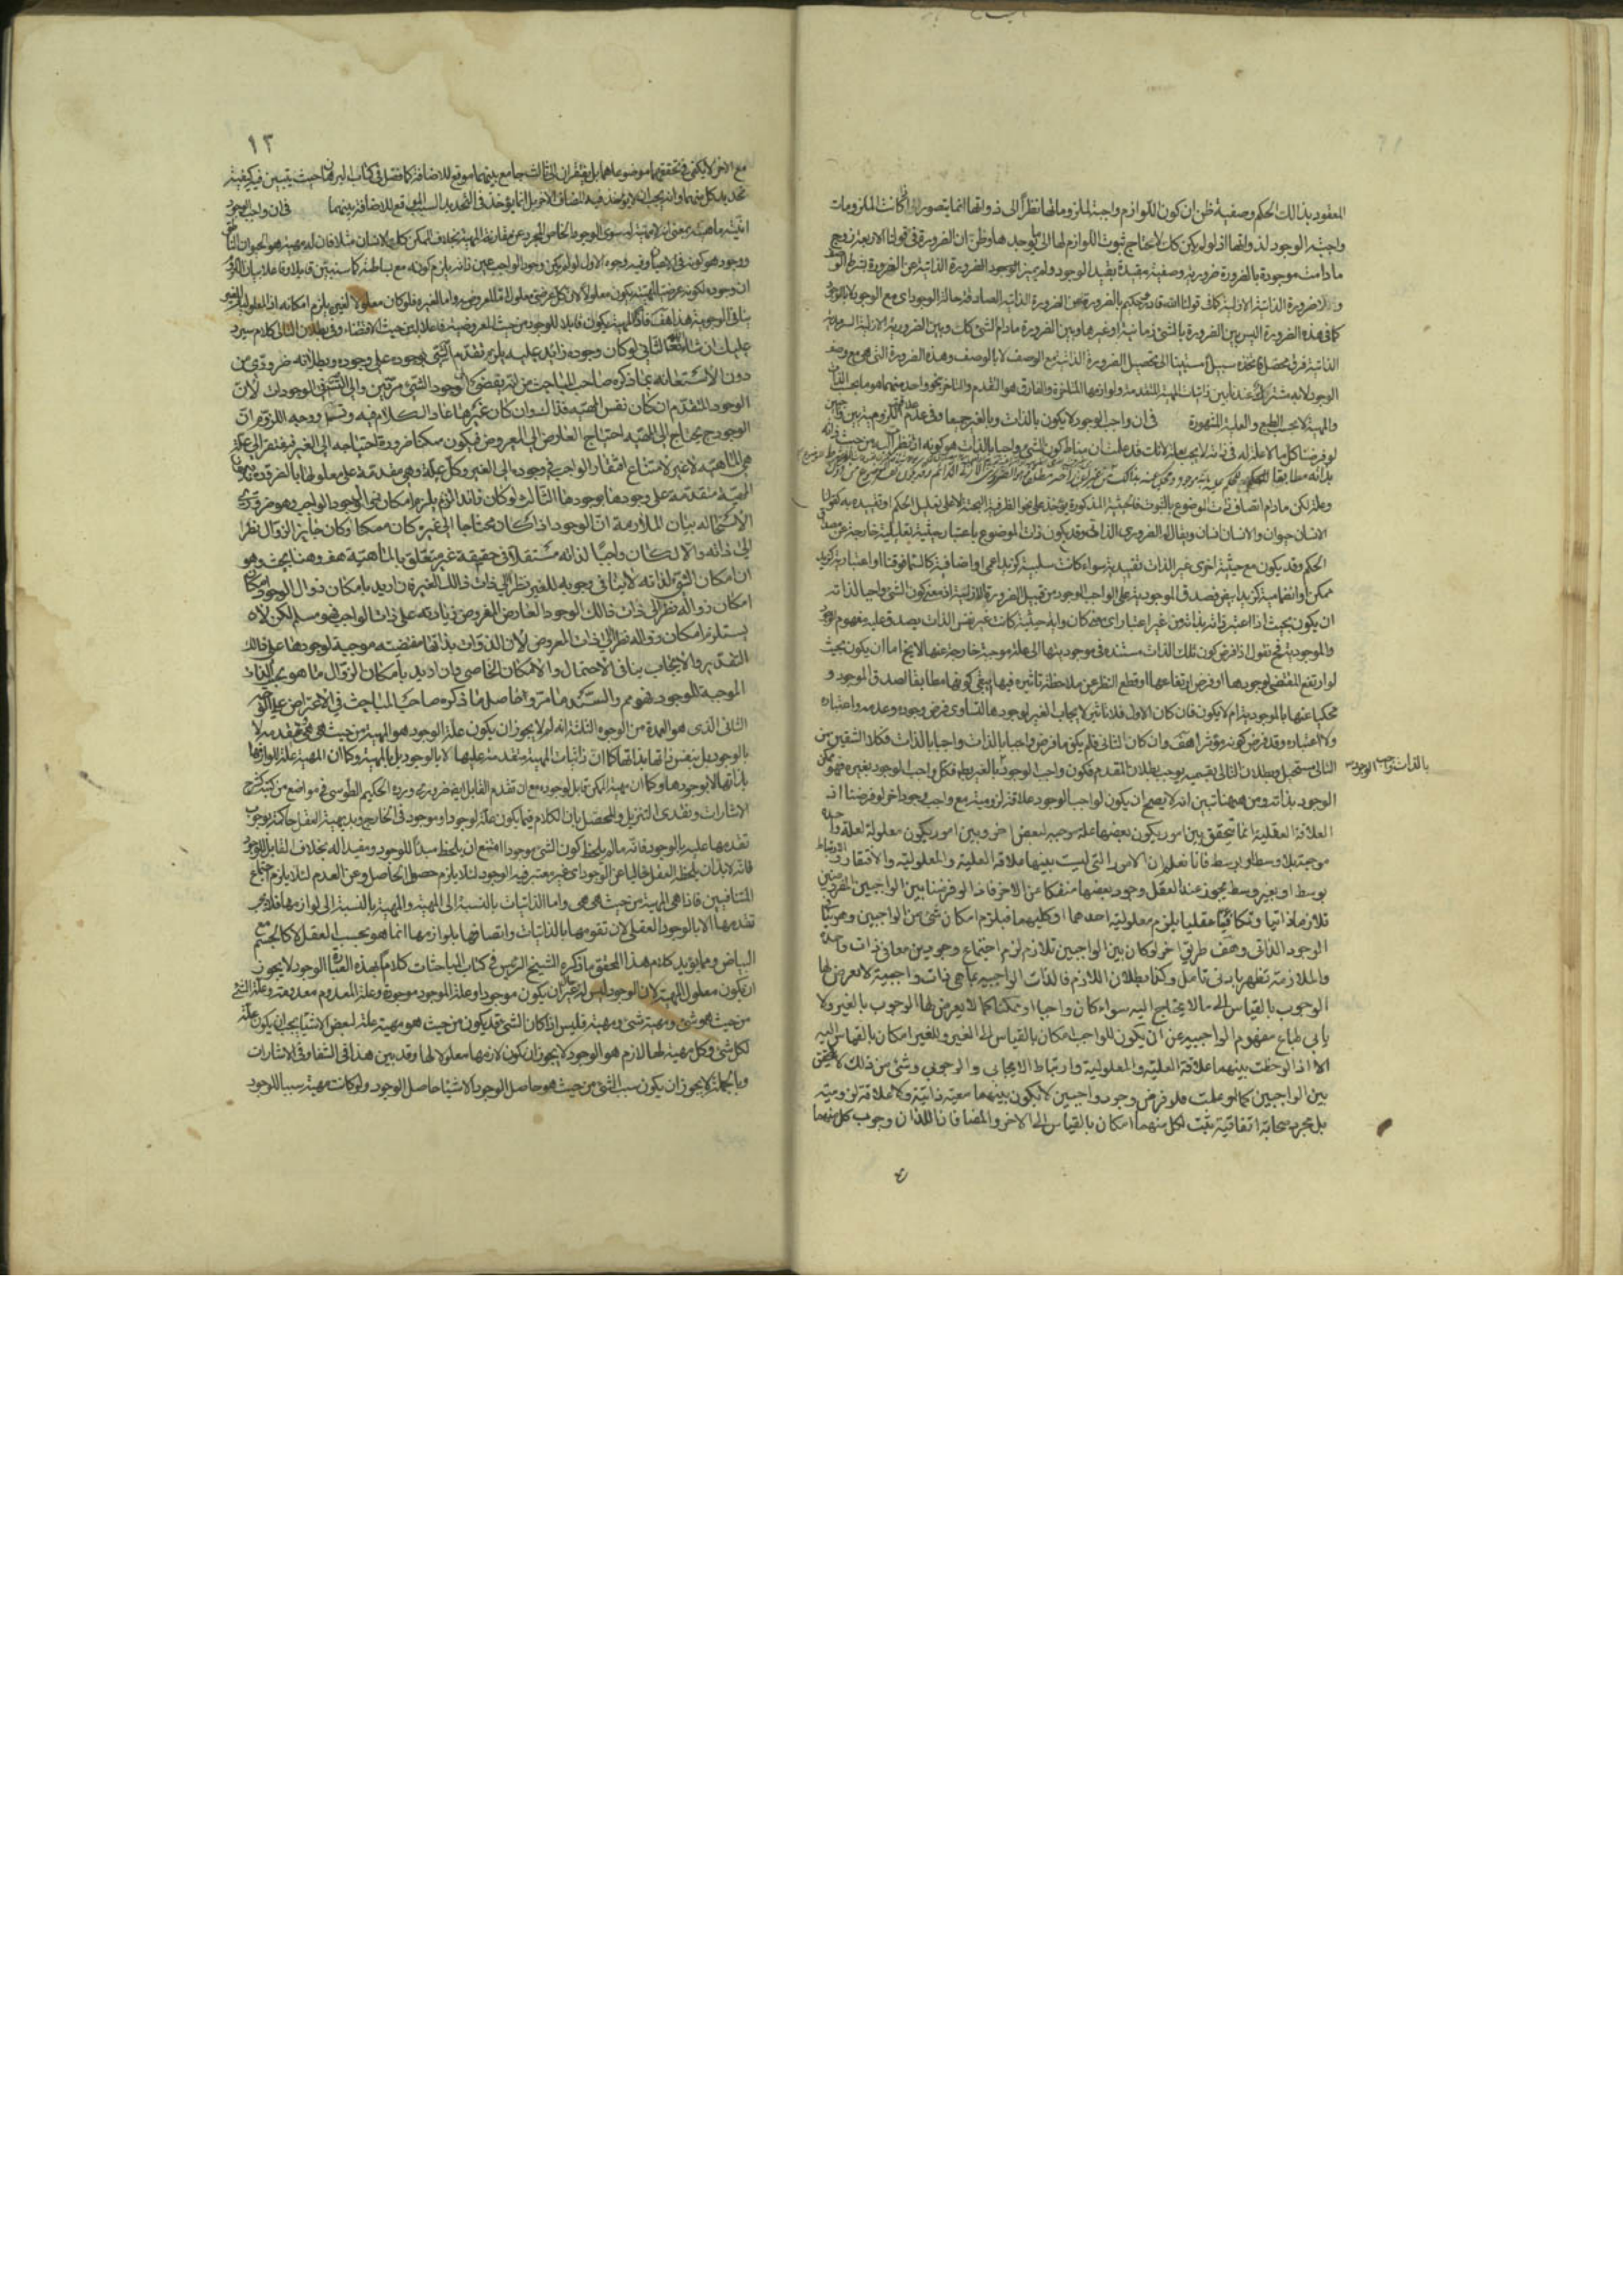 المعقود بذالك الحكم وصفية ظن ان كون اللوازم واجبة لملزوماتها نظراً الى ذواتها انما يتصور اذا كانت الملزومات
واجبة الوجود لذواتها اذ لو لم يكن كك لاحتاج ثبوت اللوازم لها الى ما يوجدها وظن ان الضرورة في قولنا الاربعة زوج
ما دامت موجودة بالضرورة ضرورة وصفية مقيدة بقيد الوجود ولم يميز الضرورة الذاتية عن الضرورة بشرط الوصف
ولا ضرورة الذاتية الازلية كما في قولنا الله قادر حكيم بالضرورة عن الضرورة الذاتية الصادقة حالة الوجود اى مع الوجود لا بالوجود
كما في هذه الضرورة اليس بين الضرورة بالشئ زمانية او غيرها وبين الضرورة ما دام الشئ كك وبين الضرورة الازلية السرمدية
الذاتية فرق محصل فخذه سبيلا مستبينا الى تحصيل الضرورة الذاتية مع الوصف لا بالوصف وهذه الضرورة التى هى مع وصف
الوجود لا به مشتركة عندنا بين ذاتيات المهية المتقدمة ولوازمها المتاخرة والفارق هو التقدم والتاخر بنحو واحد منهما هو ما بحسب الذات
والمهية لا بحسب الطبع والعلية المشهورة في ان واجب الوجود لا يكون بالذات وبالغير جميعا وفي عدم العلاقة اللزومية بين واجبين
لو فرضنا كل ما لا علة له في ذاته لا يجب بعلة لانك قد علمت ان مناط كون الشئ واجبا بالذات هو كونه اذا نظر اليه من حيث ذاته
بذاته مطابقا للحكم
وعلة لكن ما دام اتصاف ذات الموضوع بالثبوت فالحيثية المذكورة يؤخذ على نحو الظرفية البحتة لا على تعليل الحكم او تقييده به كقولنا
الانسان حيوان والانسان انسان ويقال له الضرورى الذاتى وقد يكون ذات الموضوع باعتبار حيثية تعليلية خارجة عن مصداق
الحكم وقد يكون مع حيثية اخرى غير الذات تقييدية سواء كانت سلبية كزيد اعمى او اضافية كالسماء فوقنا او اعتبارية كزيد
ممكن او انضمامية كزيد ابيض فصدق الموجودية على الواجب الوجود من قبيل الضرورة الازلية اذ معنى كون الشئ واجبا لذاته
ان يكون بحيث اذا اعتبر ذاته بذاته من غير اعتبار اى معنى كان واية حيثية كانت غير نفس الذات يصدق عليه مفهوم الوجود
والموجودية فح نقول اذا فرض كون تلك الذات مستندة في موجوديتها الى علة موجبة خارجة عنها لا يخ اما ان يكون بحيث
لو ارتفع المقتضى لوجودها او فرض ارتفاعه او قطع النظر عن ملاحظة تاثيره فيها يبقى كونها مطابقا لصدق الموجود و
محكيا عنها بالموجودية ام لا يكون فان كان الاول فلا تاثير لايجاب الغير لوجودها لتساوى فرض وجوده وعدمه واعتباره
ولا اعتباره وقد فرض كونه مؤثرا هف وان كان الثانى فلم يكن ما فرض واجبا بالذات واجبا بالذات فكلا الشقين من
التالى مستحيل وبطلان التالى بقسميه يوجب بطلان المقدم فكون واجب الوجود بالغير بطم فكل واجب الوجود بغيره فهو ممكن
بالذات واجب الوجود
الوجود بذاته ومن ههنا تبين انه لا يصح ان يكون لواجب الوجود علاقة لزومية مع واجب وجود اخر لو فرضنا اذ
العلاقة العقلية انما يتحقق بين امور يكون بعضها علة موجبة لبعض اخر وبين امور يكون معلولة لعلة واحدة
موجبة بلا وسط او بوسط فانا نعلم ان الامور التى ليست بينها علاقة العلية والمعلولية والافتقار والارتباط
بوسط او بغير وسط يجوز عند العقل وجود بعضها منفكا عن الاخر فاذا لو فرضنا بين الواجبين المفروضين
تلازما ذاتيا وتكافيا عقليا يلزم معلولية احدهما او كليهما فيلزم امكان شئ من الواجبين وهو ينافى
الوجود الذاتى وهف طريق اخر لو كان بين الواجبين تلازم لزم اجتماع وجوبين معا في ذات واحدة
والملازمة تظهر بادنى تامل وكذا بطلان اللازم فالذات الواجبية بما هى ذات واجبية لا يعرض لها
الوجوب بالقياس الى ما لا يحتاج اليه سواء كان واجبا او ممكنا كما لا يعرض لها الوجوب بالغير ولا
يابى طباع مفهوم الواجبية عن ان يكون للواجب امكان بالقياس الى الغير وللغير امكان بالقياس اليه
الا اذا لوحظت بينهما علاقة العلية والمعلولية وارتباط الايجابى والوجوبى وشئ من ذلك لا يتحقق
بين الواجبين كما لو علمت فلو فرض وجود واجبين لا يكون بينهما معية ذاتية ولا علاقة لزومية
بل مجرد صحابة اتفاقية يثبت لكل منهما امكان بالقياس الى الاخر والمضافان اللذان وجوب كل منهما
١٢
مع الاخر لا يكفى في تحققهما موضوعاهما بل يفتقران الى ثالث جامع بينهما موقع للاضافة كما فصل في كتاب البرهان حيث يتبين فيه كيفية
تحديد كل منهما وانه يجب ان لا يؤخذ فيه المضاف الاخر بل انما يؤخذ في التحديد السبب الموقع للاضافة بينهما في ان واجب الوجود
انيته ماهيته بمعنى انه لا مهية له سوى الوجود الخاص المجرد عن مقارنة المهية بخلاف الممكن كالانسان مثلا فان له مهية هو الحيوان الناطق
ووجود هو كونه في الاعيان وفيه وجوه الاول لو لم يكن وجود الواجب عين ذاته يلزم كونه مع بساطته كما سنبين قابلا وفاعلا بيان اللزوم
ان وجوده لكونه عرضيا لمهيته يكون معلولا لان كل عرضى معلول اما لمعروضه واما لغيره فلو كان معلولا لغيره يلزم امكانه اذ المعلولية للغير
ينافى الوجوبية هذا هف فاذا المهية يكون قابلا للوجود من حيث المعروضية فاعلا له من حيث الاقتضاء وفي بطلان التالى كلام سيرد
عليك ان شاء الله تعالى الثانى لو كان وجوده زائد عليه يلزم تقدم الشئ بوجوده على وجوده وبطلانه ضرورى من
دون الاستعانة بما ذكره صاحب المباحث من انه يفضى الى وجود الشئ مرتين والى التسلسل في الوجودات لان
الوجود المتقدم ان كان نفس المهية فذاك وان كان غيرها عاد الكلام فيه وتسلسل ووجه اللزوم ان
الوجود ح يحتاج الى المهية احتياج العارض الى المعروض فيكون ممكنا ضرورة احتياجه الى الغير فيفتقر الى علة
هى الماهية لا غير لامتناع افتقار الواجب في وجوده الى الغير وكل علة فهى مقدمة على معلولها بالضرورة فيكون
المهية متقدمة على وجودها بوجودها الثالث لو كان زائدا لزم يلزم امكان زوال وجود الواجب وهو ضرورى
الاستحالة بيان الملازمة ان الوجود اذا كان محتاجا الى غيره كان ممكنا وكان جايز الزوال نظرا
الى ذاته والا لكان واجبًا لذاته مستقلا في حقيقته غير متعلق بالماهية هف وههنا بحث وهو
ان امكان الشئ لذاته لا ينافى وجوبه للغير نظرا الى ذات ذالك الغير فان اريد بامكان زوال الوجود امكان
امكان زواله نظرا الى ذات ذالك الوجود العارض المفروض زيادته على ذات الواجب فهو مسلم لكن لا
يستلزم امكان زواله نظرا الى ذات المعروض لان الذات بذاتها مقتضية موجبة لوجودها على ذالك
التقدير والايجاب ينافى الاحتمال والامكان الخاصى وان اريد بامكان الزوال ما هو بحسب الذات
الموجبة للوجود فهو مم والسند ما مر وحاصل ما ذكره صاحب المباحث في الاعتراض على الوجه
الثانى الذى هو العمدة من الوجوه الثلثة انه لم لا يجوز ان يكون علة الوجود هو المهية من حيث هى هى فيتقدمه لا
بالوجود بل بنفس ذاتها بذاتها كما ان ذاتيات المهية متقدمة عليها لا بالوجود بل بالمهية وكما ان المهية علة للوازمها
بذاتها لا بوجودها وكما ان مهية الممكن قابل لوجوده مع ان تقدم القابل ايض ضرورى ورده الحكيم الطوسى في مواضع من كتبه كشرح
الاشارات ونقدى التنزيل والمحصل بان الكلام فيما يكون علة لوجود او موجود في الخارج وبديهية العقل حاكمة بوجوب
تقدمها عليه بالوجود فانه ما لم يلحظ كون الشئ موجودا امتنع ان يلحظ مبدأ للوجود ومفيدا له بخلاف القابل للوجود
فانه لا بد ان يلحظه العقل خاليا عن الوجود اى غير معتبر فيه الوجود لئلا يلزم حصول الحاصل وعن العدم لئلا يلزم اجتماع
المتنافيين فاذا هى المهية من حيث هى هى واما الذاتيات بالنسبة الى المهية والمهية بالنسبة الى لوازمها فلا يجب
تقدمها الا بالوجود العقلى لان تقومها بالذاتيات واتصافها بلوازمها انما هو بحسب العقل لا كالجسم مع
البياض ومما يؤيد كلام هذا المحقق ما ذكره الشيخ الرئيس في كتاب المباحثات كلاما بهذه العبارة الوجود لا يجوز
ان يكون معلول المهية لان الوجود ليس له غير ان يكون موجودا وعلة الموجود موجودة وعلة المعدوم معدومة وعلة الشئ
من حيث هو شئ ومهية شئ ومهية فليس اذا كان الشئ قد يكون من حيث هو مهية علة لبعض الاشياء يجب ان يكون علة
لكل شئ وكل مهية لها لازم هو الوجود لا يجوز ان يكون لازمها معلولا لها وقد بين هذا في الشفاء وفي الاشارات
وبالجملة لا يجوز ان يكون سبب الشئ من حيث هو حاصل الوجود الا شيئا حاصل الوجود ولو كانت مهية سببا للوجود